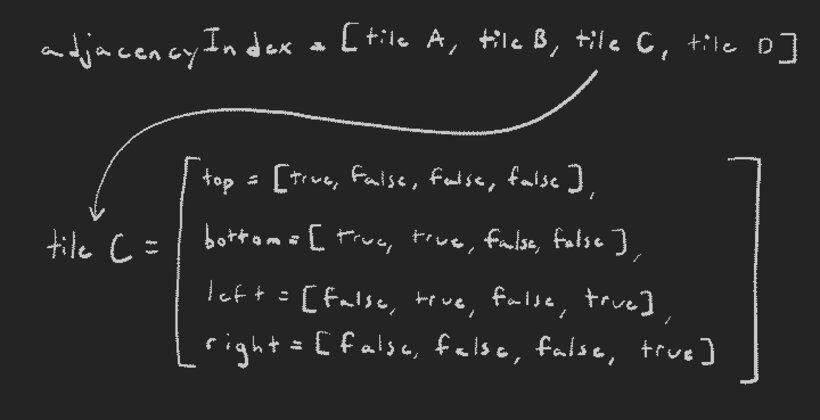 adjacencyIndex = [tile A, tile B, tile C, tile D]
top = [true, false, false, false],
bottom = [true, true, false, false],
tile C =
left = [false, true, false, true],
right = [false, false, false, true]